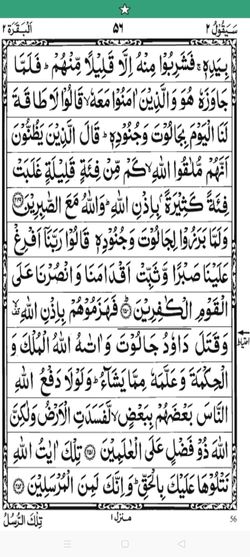 سَيَقُوْلُ ٢ ٥٦ اَلْبَقَرَة ٢
بِيَدِهٖ ۚ فَشَرِبُوْا مِنْهُ اِلَّا قَلِيْلًا مِّنْهُمْ ؕ فَلَمَّا
جَاوَزَهٗ هُوَ وَالَّذِيْنَ اٰمَنُوْا مَعَهٗ ۙ قَالُوْا لَا طَاقَةَ
لَنَا الْيَوْمَ بِجَالُوْتَ وَجُنُوْدِهٖ ؕ قَالَ الَّذِيْنَ يَظُنُّوْنَ
اَنَّهُمْ مُّلٰقُوا اللّٰهِ ۙ كَمْ مِّنْ فِئَةٍ قَلِيْلَةٍ غَلَبَتْ
فِئَةً كَثِيْرَةًۢ بِاِذْنِ اللّٰهِ ؕ وَاللّٰهُ مَعَ الصّٰبِرِيْنَ ﴿٢٤٩﴾
وَلَمَّا بَرَزُوْا لِجَالُوْتَ وَجُنُوْدِهٖ قَالُوْا رَبَّنَاۤ اَفْرِغْ
عَلَيْنَا صَبْرًا وَّثَبِّتْ اَقْدَامَنَا وَانْصُرْنَا عَلَى
الْقَوْمِ الْكٰفِرِيْنَ ﴿٢٥٠﴾ فَهَزَمُوْهُمْ بِاِذْنِ اللّٰهِ ۙ
وَقَتَلَ دَاوٗدُ جَالُوْتَ وَاٰتٰىهُ اللّٰهُ الْمُلْكَ وَ
الْحِكْمَةَ وَعَلَّمَهٗ مِمَّا يَشَآءُ ؕ وَلَوْلَا دَفْعُ اللّٰهِ
النَّاسَ بَعْضَهُمْ بِبَعْضٍ ۙ لَّفَسَدَتِ الْاَرْضُ وَلٰكِنَّ
اللّٰهَ ذُوْ فَضْلٍ عَلَى الْعٰلَمِيْنَ ﴿٢٥١﴾ تِلْكَ اٰيٰتُ اللّٰهِ
نَتْلُوْهَا عَلَيْكَ بِالْحَقِّ ؕ وَاِنَّكَ لَمِنَ الْمُرْسَلِيْنَ ﴿٢٥٢﴾
تِلْكَ الرُّسُلُ منزل ١ 56